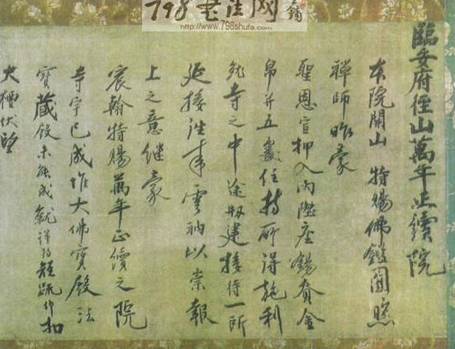 798书法网
http://www.798shufa.com
臨安府徑山萬年正續院
本院開山 特賜佛鑑圓照
禪師昨蒙
聖恩宣押入內陞座錫賚金
帛并五處住持所得施利
就寺之中途創建接待一所
延接往來雲衲以崇報
上之意繼蒙
宸翰特賜萬年正續之院
寺宇已成惟大佛寶殿法
寶藏殿未能成就謹持短疏仰扣
大檀伏望